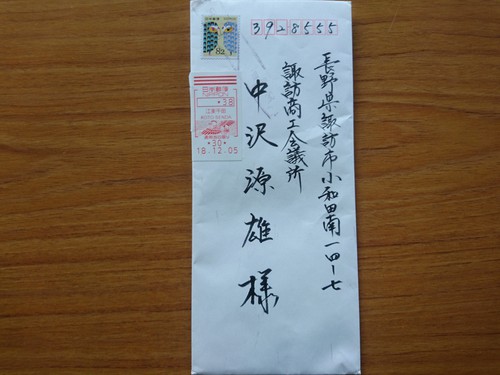 3928555
長野県諏訪市小和田南一四ー七
諏訪商工会議所
中沢源雄様
82
日本郵便
NIPPON
*30*
18.12.05